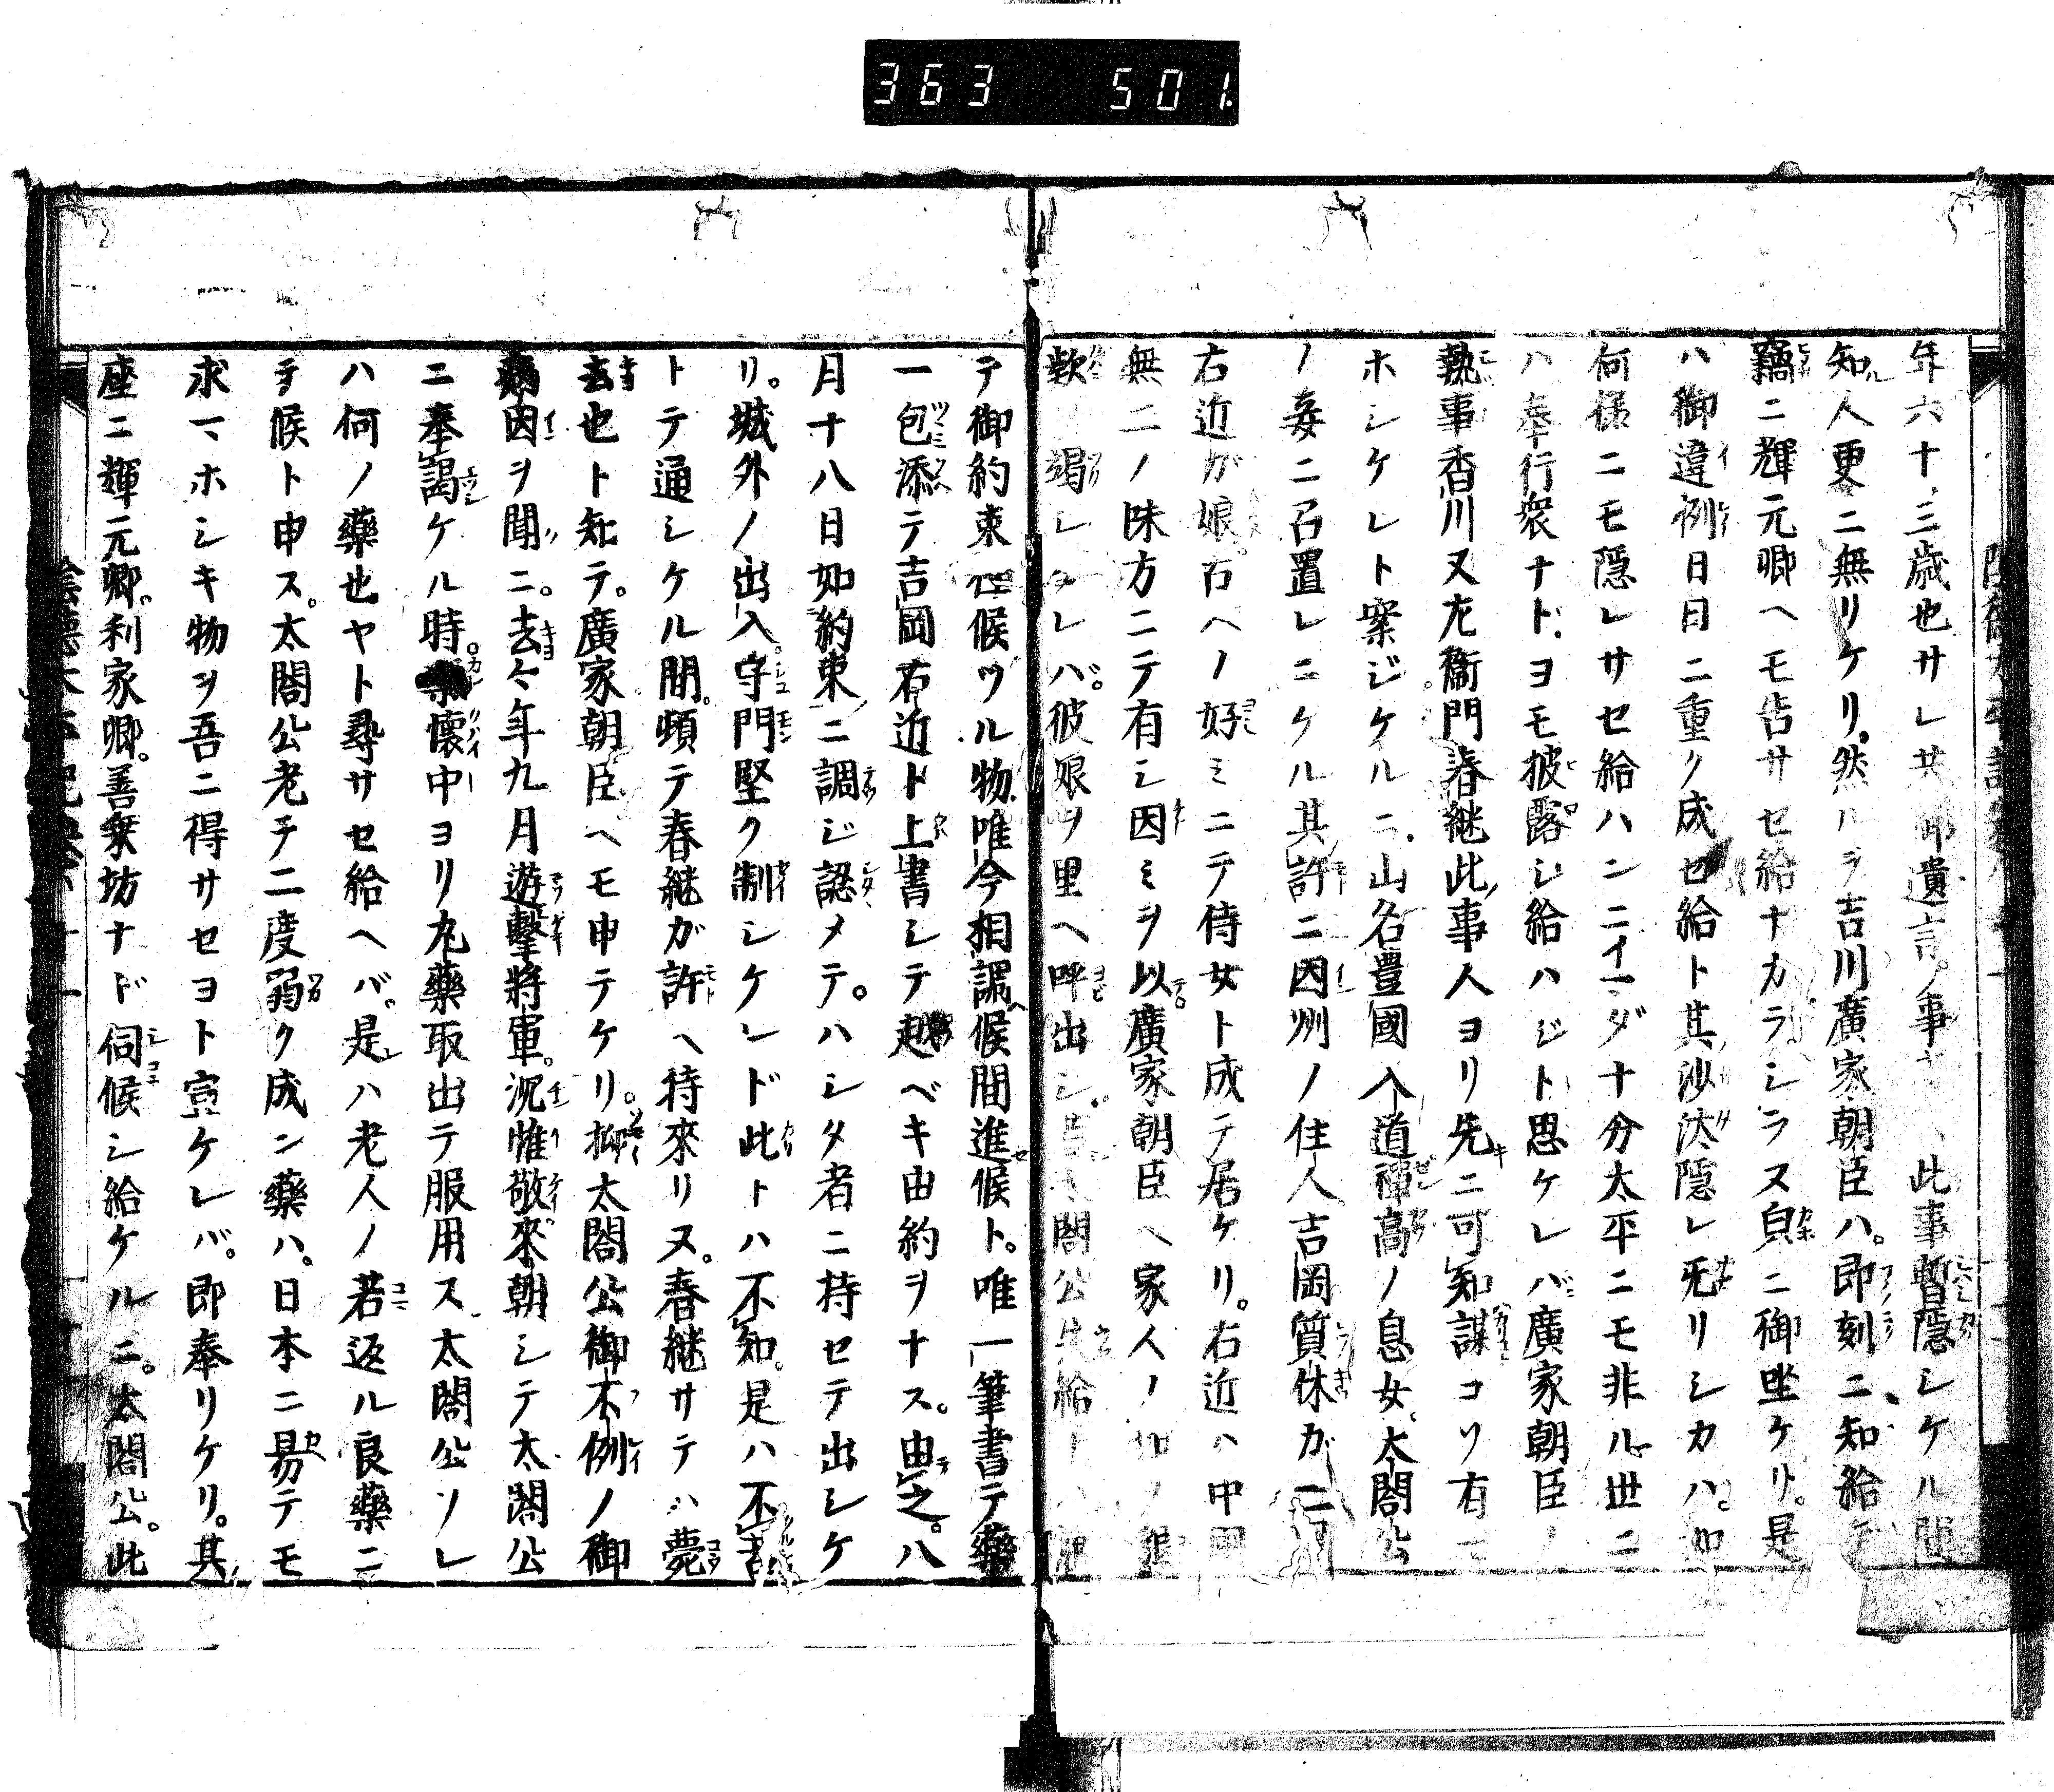 363 501.
年六十三歳也サレ共御遺言ノ事 此事暫隠シケル間
知ル人更ニ無リケリ。然ルヲ吉川廣家朝臣ハ。即刻ニ知給テ
竊ニ輝元卿ヘモ告サセ給ナカラシラス皃ニ御坐ケリ。是
ハ御違例日日ニ重ク成セ給ト其沙汰隠レ无リシカハ。如
何様ニモ隠レサセ給ハンニイマダ十分太平ニモ非ル世ニ
ハ奉行衆ナド.ヨモ披露シ給ハジト思ケレバ廣家朝臣ノ
執事香川又左衛門春継此事人ヨリ先ニ可知謀コソ有マ
ホシケレト案ジケルニ.山名豊國入道禪高ノ息女太閤公
ノ妾ニ召置レニケル其許ニ因州ノ住人吉岡質休ガ二男
右近ガ娘。古ヘノ好ミニテ侍女ト成テ居ケリ。右近ハ中國
無二ノ味方ニテ有シ因ミヲ以廣家朝臣ヘ家人ノ如ノ
歎 竭レ レバ。彼娘ヲ里ヘ呼出シ. 閤公 給
テ御約束 候ツル物唯今相調ヘ候間進候ト。唯一筆書テ藥
一包添テ吉岡右近ト上書シテ越ベキ由約ヲナス。由之。八
月十八日如約束ニ調ジ認メテ。ハシタ者ニ持セテ出シケ
リ。城外ノ出入守門堅ク制シケレド此トハ不知。是ハ不苦
トテ通シケル間。頓テ春継ガ許ヘ持來リヌ。春継サテハ薨
去也ト知テ。廣家朝臣ヘモ申テケリ。抑太閤公御不例ノ御
病因ヲ聞ニ。去々年九月遊撃將軍。沈惟敬來朝シテ太閤公
ニ奉謁ケル時。懐中ヨリ丸藥取出テ服用ス太閤公ソレ
ハ何ノ藥也ヤト尋サセ給ヘバ。是ハ老人ノ若返ル良藥ニ
テ候ト申ス。太閤公老テ二度弱ク成ン藥ハ。日本ニ易テモ
求マホシキ物ヲ吾ニ得サセヨト宣ケレバ。即奉リケリ。其
座ニ輝元卿。利家卿。善乗坊ナド伺候シ給ケルニ。太閤公。此